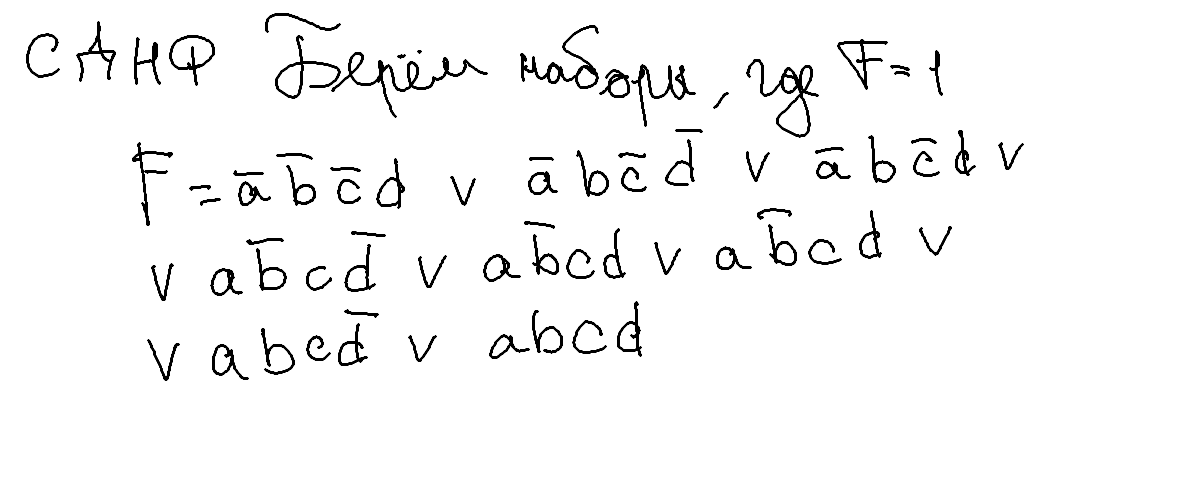 СДНФ Берём наборы, где F=1
F = a̅ b̅ c̅ d v a̅ b c̅ d̅ v a̅ b c̅ d v
v a b̅ c d̅ v a b̅ c d v a b̅ c d v
v a b c d̅ v a b c d